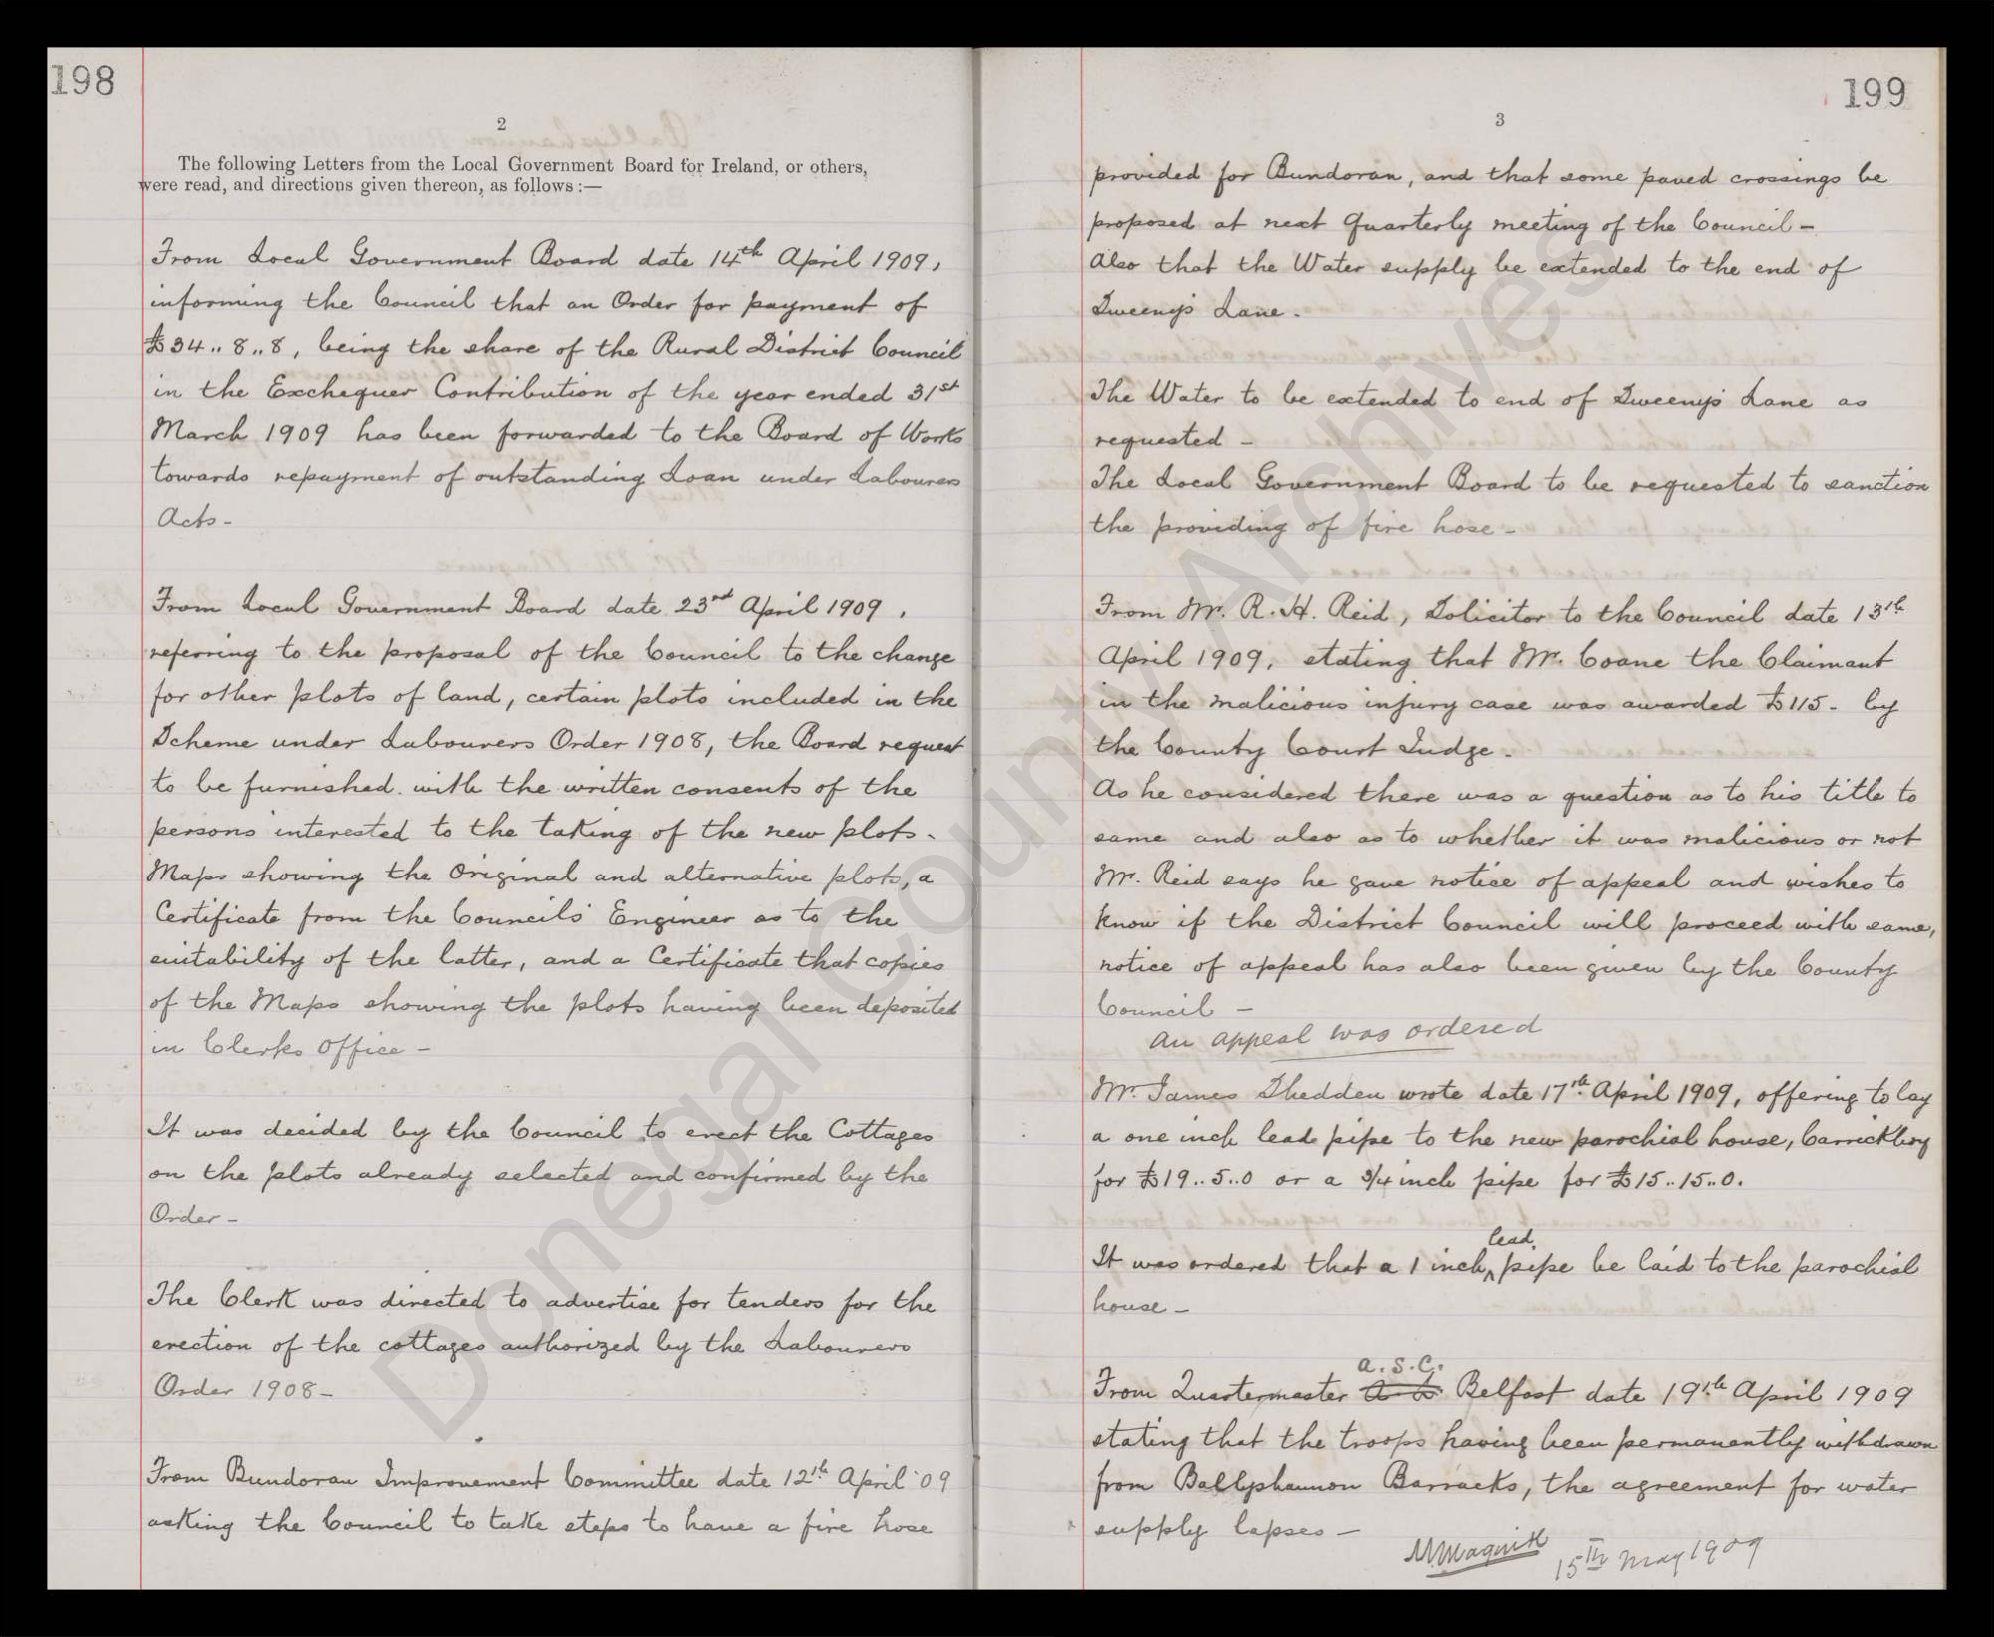 198
2
The following Letters from the Local Government Board for Ireland, or others,
were read, and directions given thereon, as follows :—
From Local Government Board date 14th April 1909,
informing the Council that an Order for payment of
£34..8..8, being the share of the Rural District Council
in the Exchequer Contribution of the year ended 31st
March 1909 has been forwarded to the Board of Works
towards repayment of outstanding Loan under Labourers
Acts-
From Local Government Board date 23rd April 1909,
referring to the proposal of the Council to the change
for other plots of land, certain plots included in the
Scheme under Labourers Order 1908, the Board request
to be furnished with the written consents of the
persons interested to the taking of the new plots.
Maps showing the Original and alternative plots, a
Certificate from the Councils' Engineer as to the
suitability of the latter, and a Certificate that copies
of the Maps showing the plots having been deposited
in Clerks Office -
It was decided by the Council to erect the Cottages
on the plots already selected and confirmed by the
Order -
The Clerk was directed to advertise for tenders for the
erection of the cottages authorized by the Labourers
Order 1908-
From Bundoran Improvement Committee date 12th April '09
asking the Council to take steps to have a fire hose
199
3
provided for Bundoran, and that some paved crossings be
proposed at next Quarterly meeting of the Council -
Also that the Water supply be extended to the end of
Sweeny's Lane.
The Water to be extended to end of Sweeny's Lane as
requested -
The Local Government Board to be requested to sanction
the providing of fire hose -
From Mr. R. H. Reid, Solicitor to the Council date 13th
April 1909, stating that Mr. Coane the Claimant
in the malicious injury case was awarded £115- by
the County Court Judge.
As he considered there was a question as to his title to
same and also as to whether it was malicious or not
Mr. Reid says he gave notice of appeal and wishes to
know if the District Council will proceed with same,
notice of appeal has also been given by the County
Council -
An appeal was ordered
Mr. James Shedden wrote date 17th April 1909, offering to lay
a one inch lead pipe to the new parochial house, Carrickboy
for £19..5..0 or a 3/4 inch pipe for £15..15..0.
It was ordered that a 1 inch lead pipe be laid to the parochial
house -
From Quartermaster A.S.C. Belfast date 19th April 1909
stating that the troops having been permanently withdrawn
from Ballyshannon Barracks, the agreement for water
supply lapses -
15th May 1909
Donegal County Archives